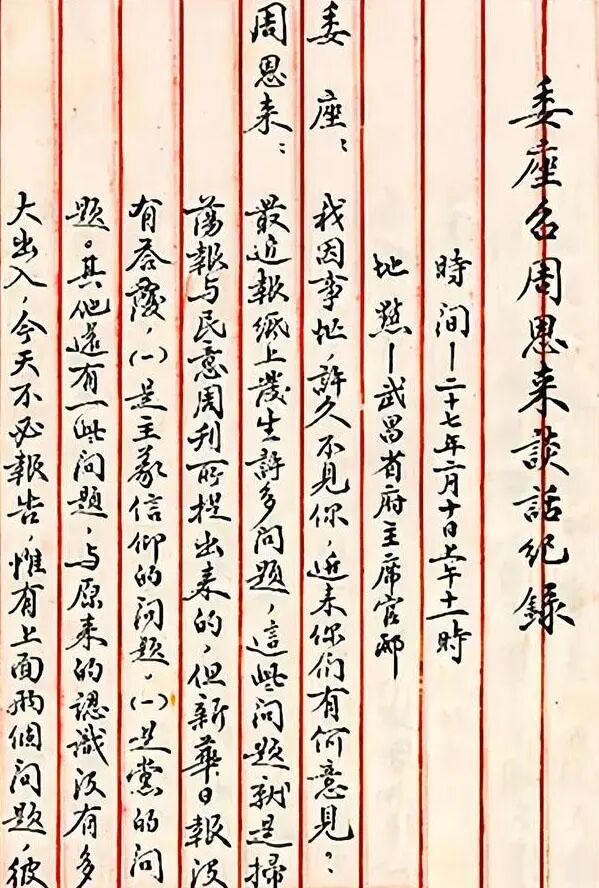 委座召周恩来談話纪录
時间－二十七年二月十日上午十一時
地點－武昌省府主席官邸
委座：我因事忙，許久不见你，近来你们有何意見？
周恩来：最近報紙上發生許多问题，這些问题就是掃
蕩報与民意周刊所提出来的，但新華日報没
有答覆，（一）是主義信仰的问题，（一）是党的问
题。其他還有一些问题，与原来的認識没有多
大出入，今天不必報告，惟有上面両個问题，彼